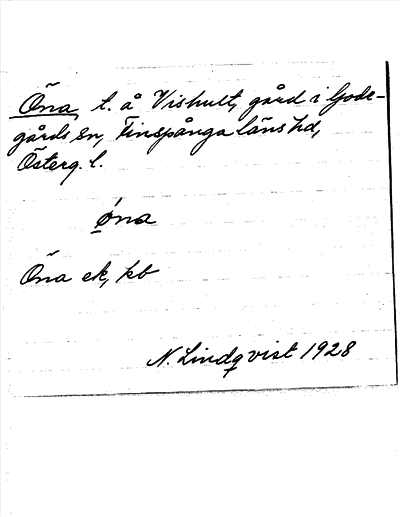 Öna, t. å Vishult, gård i Gode-
gårds sn, Finspånga läns hd,
Österg. l.
øna
Öna ek, kb
N. Lindqvist 1928